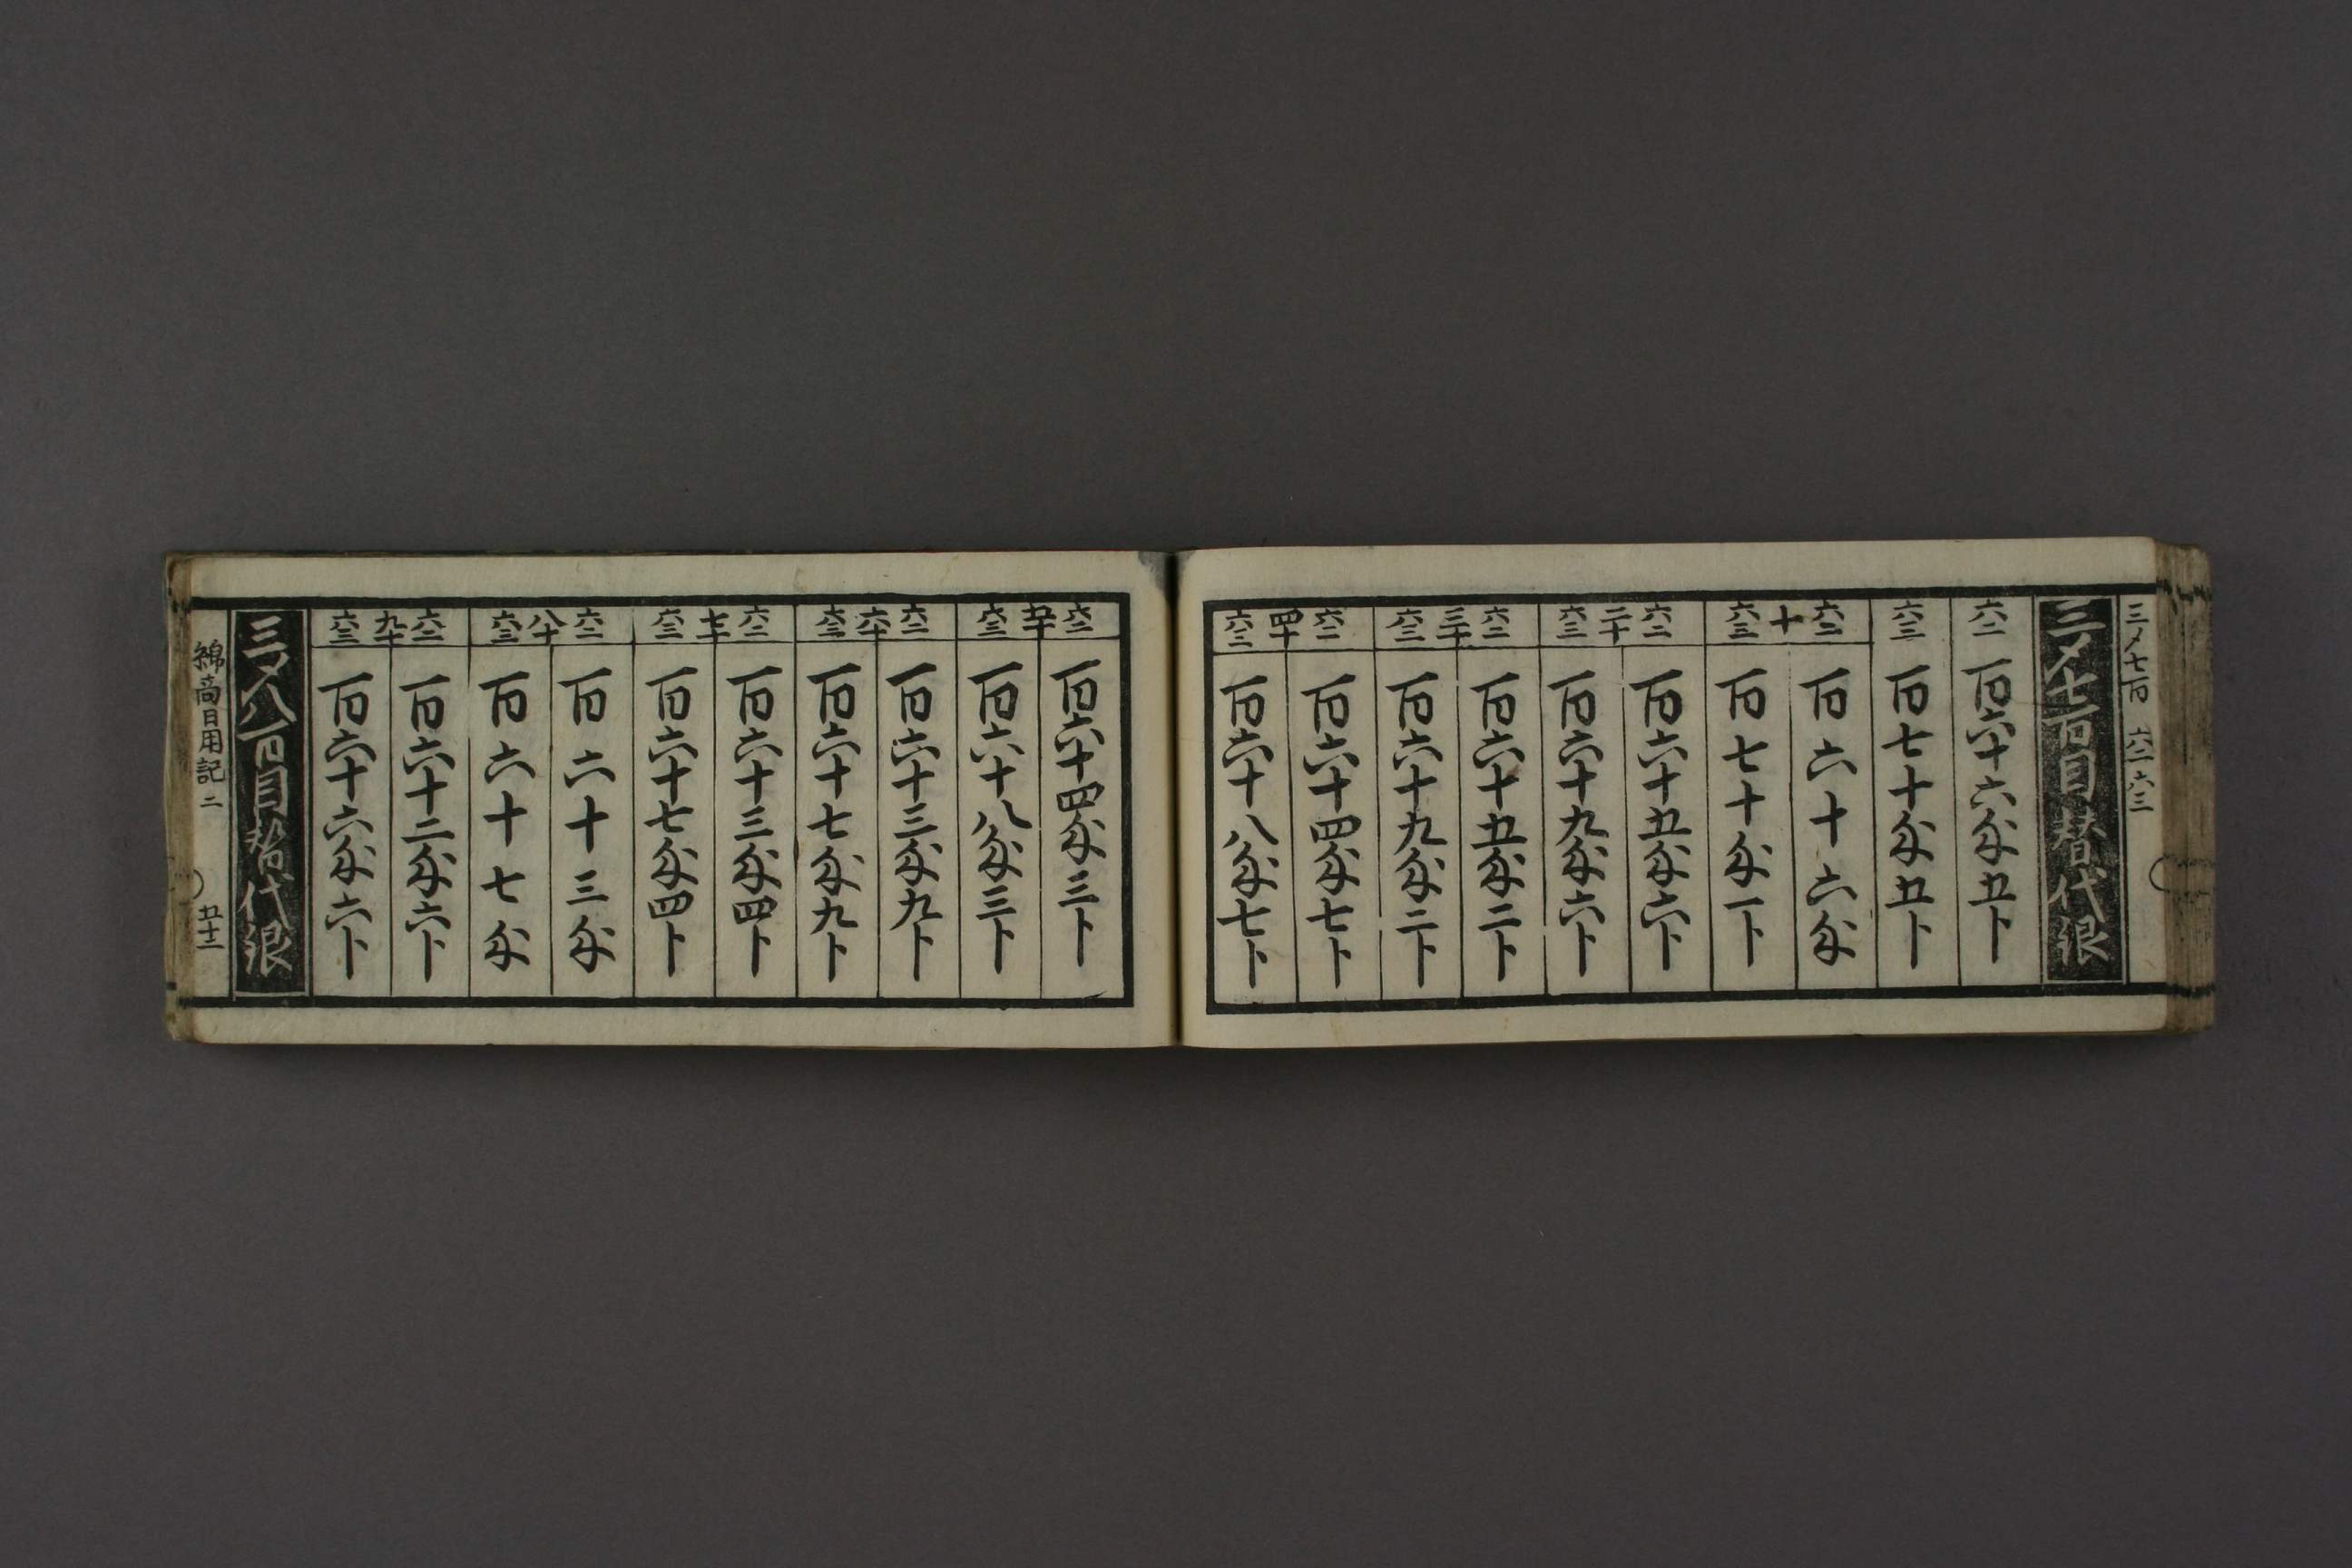 三〆七百 六二 六三
三〆七百目替代銀
六二 百六十六匁五卜
六三 百七十匁五卜
六二 十 六三
百六十六匁
百七十匁一卜
六二 二十 六三
百六十五匁六卜
百六十九匁六卜
六二 三十 六三
百六十五匁二卜
百六十九匁二卜
六二 四十 六三
百六十四匁七卜
百六十八匁七卜
六二 五十 六三
百六十四匁三卜
百六十八匁三卜
六二 六十 六三
百六十三匁九卜
百六十七匁九卜
六二 七十 六三
百六十三匁四卜
百六十七匁四卜
六二 八十 六三
百六十三匁
百六十七匁
六二 九十 六三
百六十二匁六卜
百六十六匁六卜
三〆八百目替代銀
綿商日用記 二 五十二